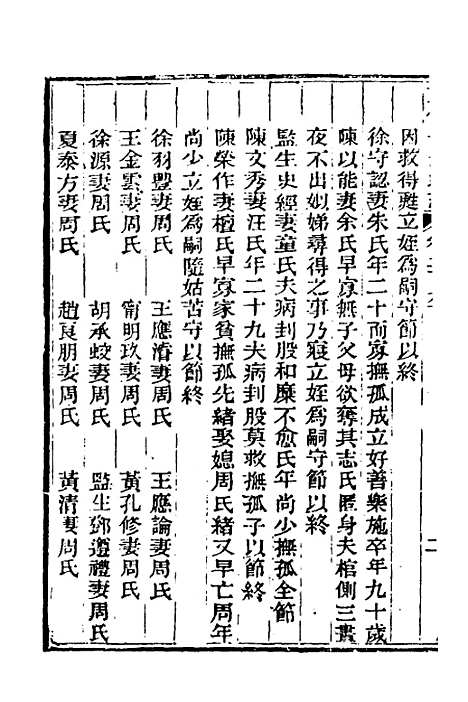 因救得甦立姪為嗣守節以終
徐守認妻朱氏年二十而寡撫孤成立好善樂施卒年九十歲
陳以能妻余氏早寡無子父母欲奪其志氏匿身夫棺側三晝
夜不出姒娣尋得之事乃寢立姪為嗣守節以終
監生史經妻童氏夫病刲股和糜不愈氏年尚少撫孤全節
陳文秀妻汪氏年二十九夫病刲股莫救撫孤子以節終
陳榮作妻檀氏早寡家貧撫孤先緒娶媳周氏緒又早亡周年
尚少立姪為嗣隨姑苦守以節終
徐羽豐妻周氏 王應濬妻周氏 王應論妻周氏
王金雲妻周氏 甯明玖妻周氏 黃孔修妻周氏
徐源妻周氏 胡承蛟妻周氏 監生鄧遵禮妻周氏
夏泰方妻周氏 趙良朋妻周氏 黃清妻周氏